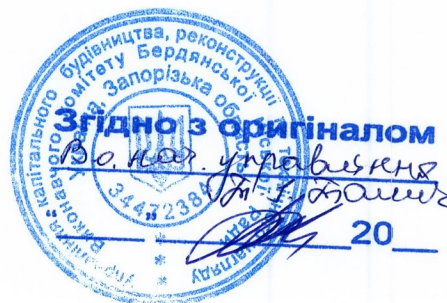 капітального будівництва, реконструкції
виконавчого комітету Бердянської
Україна Запорізька область
34472384
Згідно з оригіналом
В.о. нач. управління
" " 20